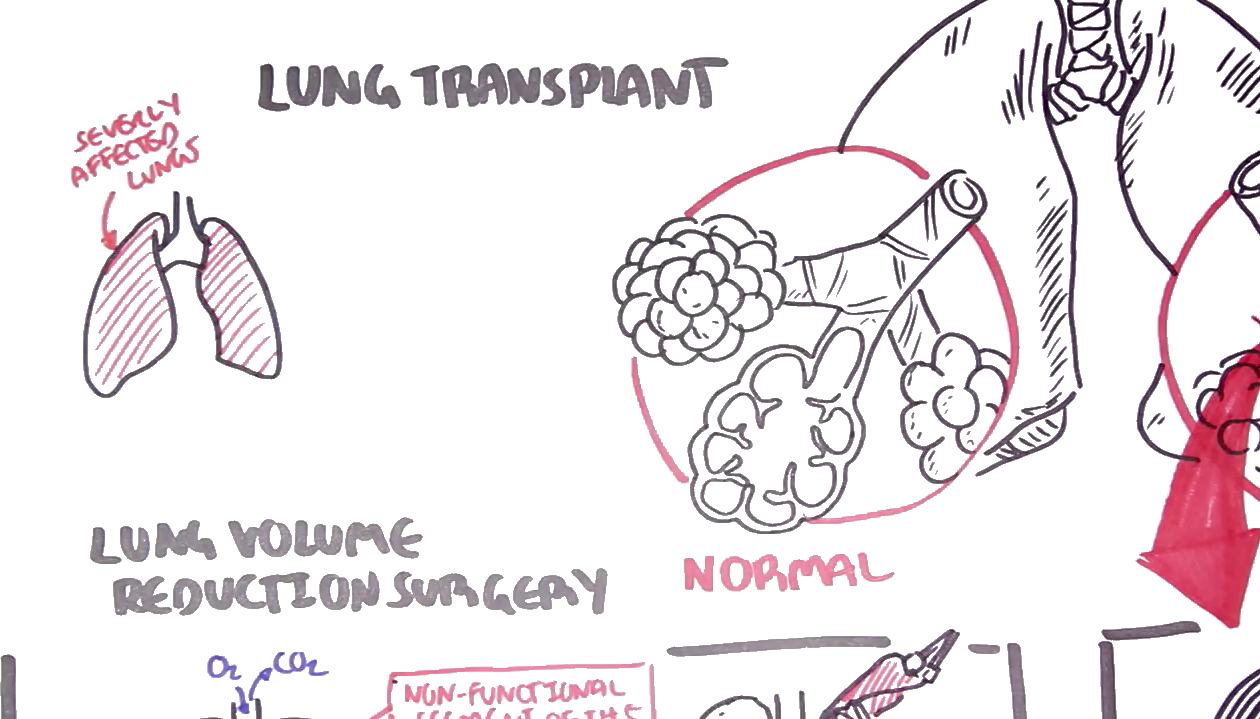 LUNG TRANSPLANT
SEVERLY
AFFECTED
LUNGS
NORMAL
LUNG VOLUME
REDUCTION SURGERY
O₂
CO₂
NON-FUNCTIONAL